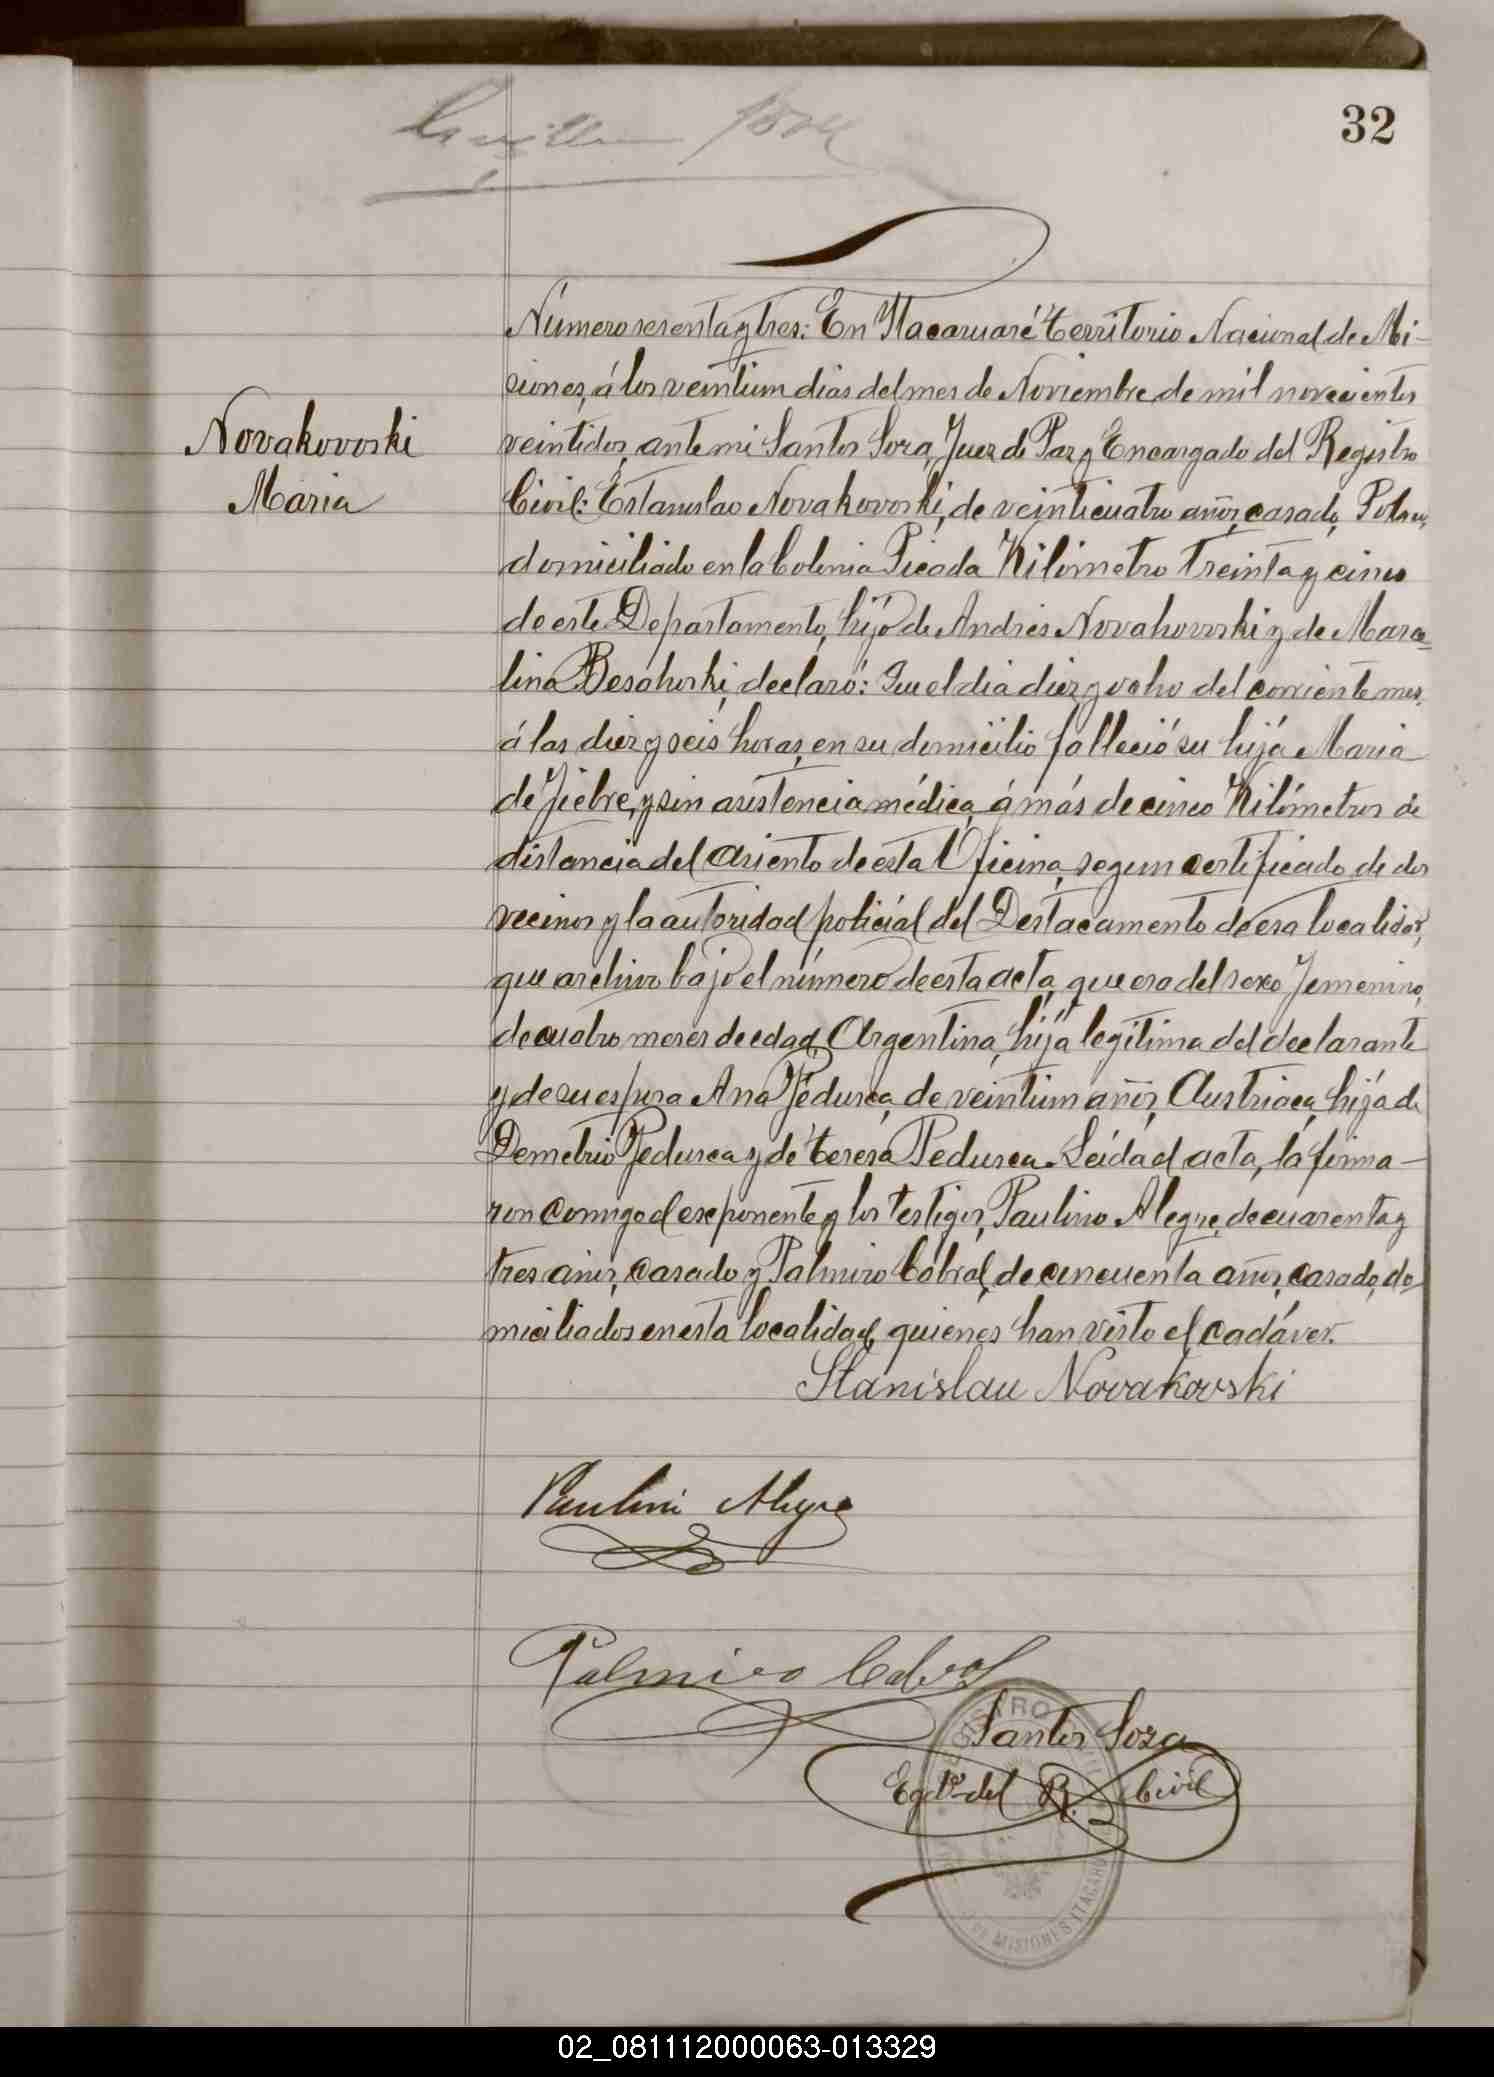 32
Número sesenta y tres: En Itacaruaré Territorio Nacional de Mi-
siones, á los veintiun dias del mes de Noviembre de mil novecientos
Novakovoski
veintidos, ante mi Santos Soza, Juez de Paz y Encargado del Registro
Maria
Civil: Estanislao Novakovoski, de veinticuatro años, casado, Polaco,
domiciliado en la Colonia Picada Kilómetro treinta y cinco
de este Departamento, hijo de Andrés Novakovoski y de Mara-
lina, declaró: Que el dia diez y ocho del corriente mes,
á las diez y seis horas, en su domicilio falleció su hija Maria
de fiebre, y sin asistencia médica, á más de cinco Kilómetros de
distancia del asiento de esta Oficina, segun certificado de dos
vecinos y la autoridad policial del Destacamento de esa localidad,
que archivo bajo el número de esta acta, que era del sexo femenino,
de cuatro meses de edad, Argentina, hija legítima del declarante
y de su esposa Ana Pedusca, de veintiun años, Austriaca, hija de
Demetrio Pedusca y de Teresa Pedusca. Leida el acta, la firma-
ron conmigo el exponente y los testigos, Paulino Alegre, de cuarenta y
tres años, casado y Palmiro Cabral, de cincuenta años, casado, do-
miciliados en esta localidad, quienes han visto el cadáver.
Stanislau Novakovski
Paulino Alegre
Palmiro Cabral
Santos Soza
Egdo. del R. Civil
REGISTRO CIVIL
DE MISIONES ITACARU
02_081112000063-013329